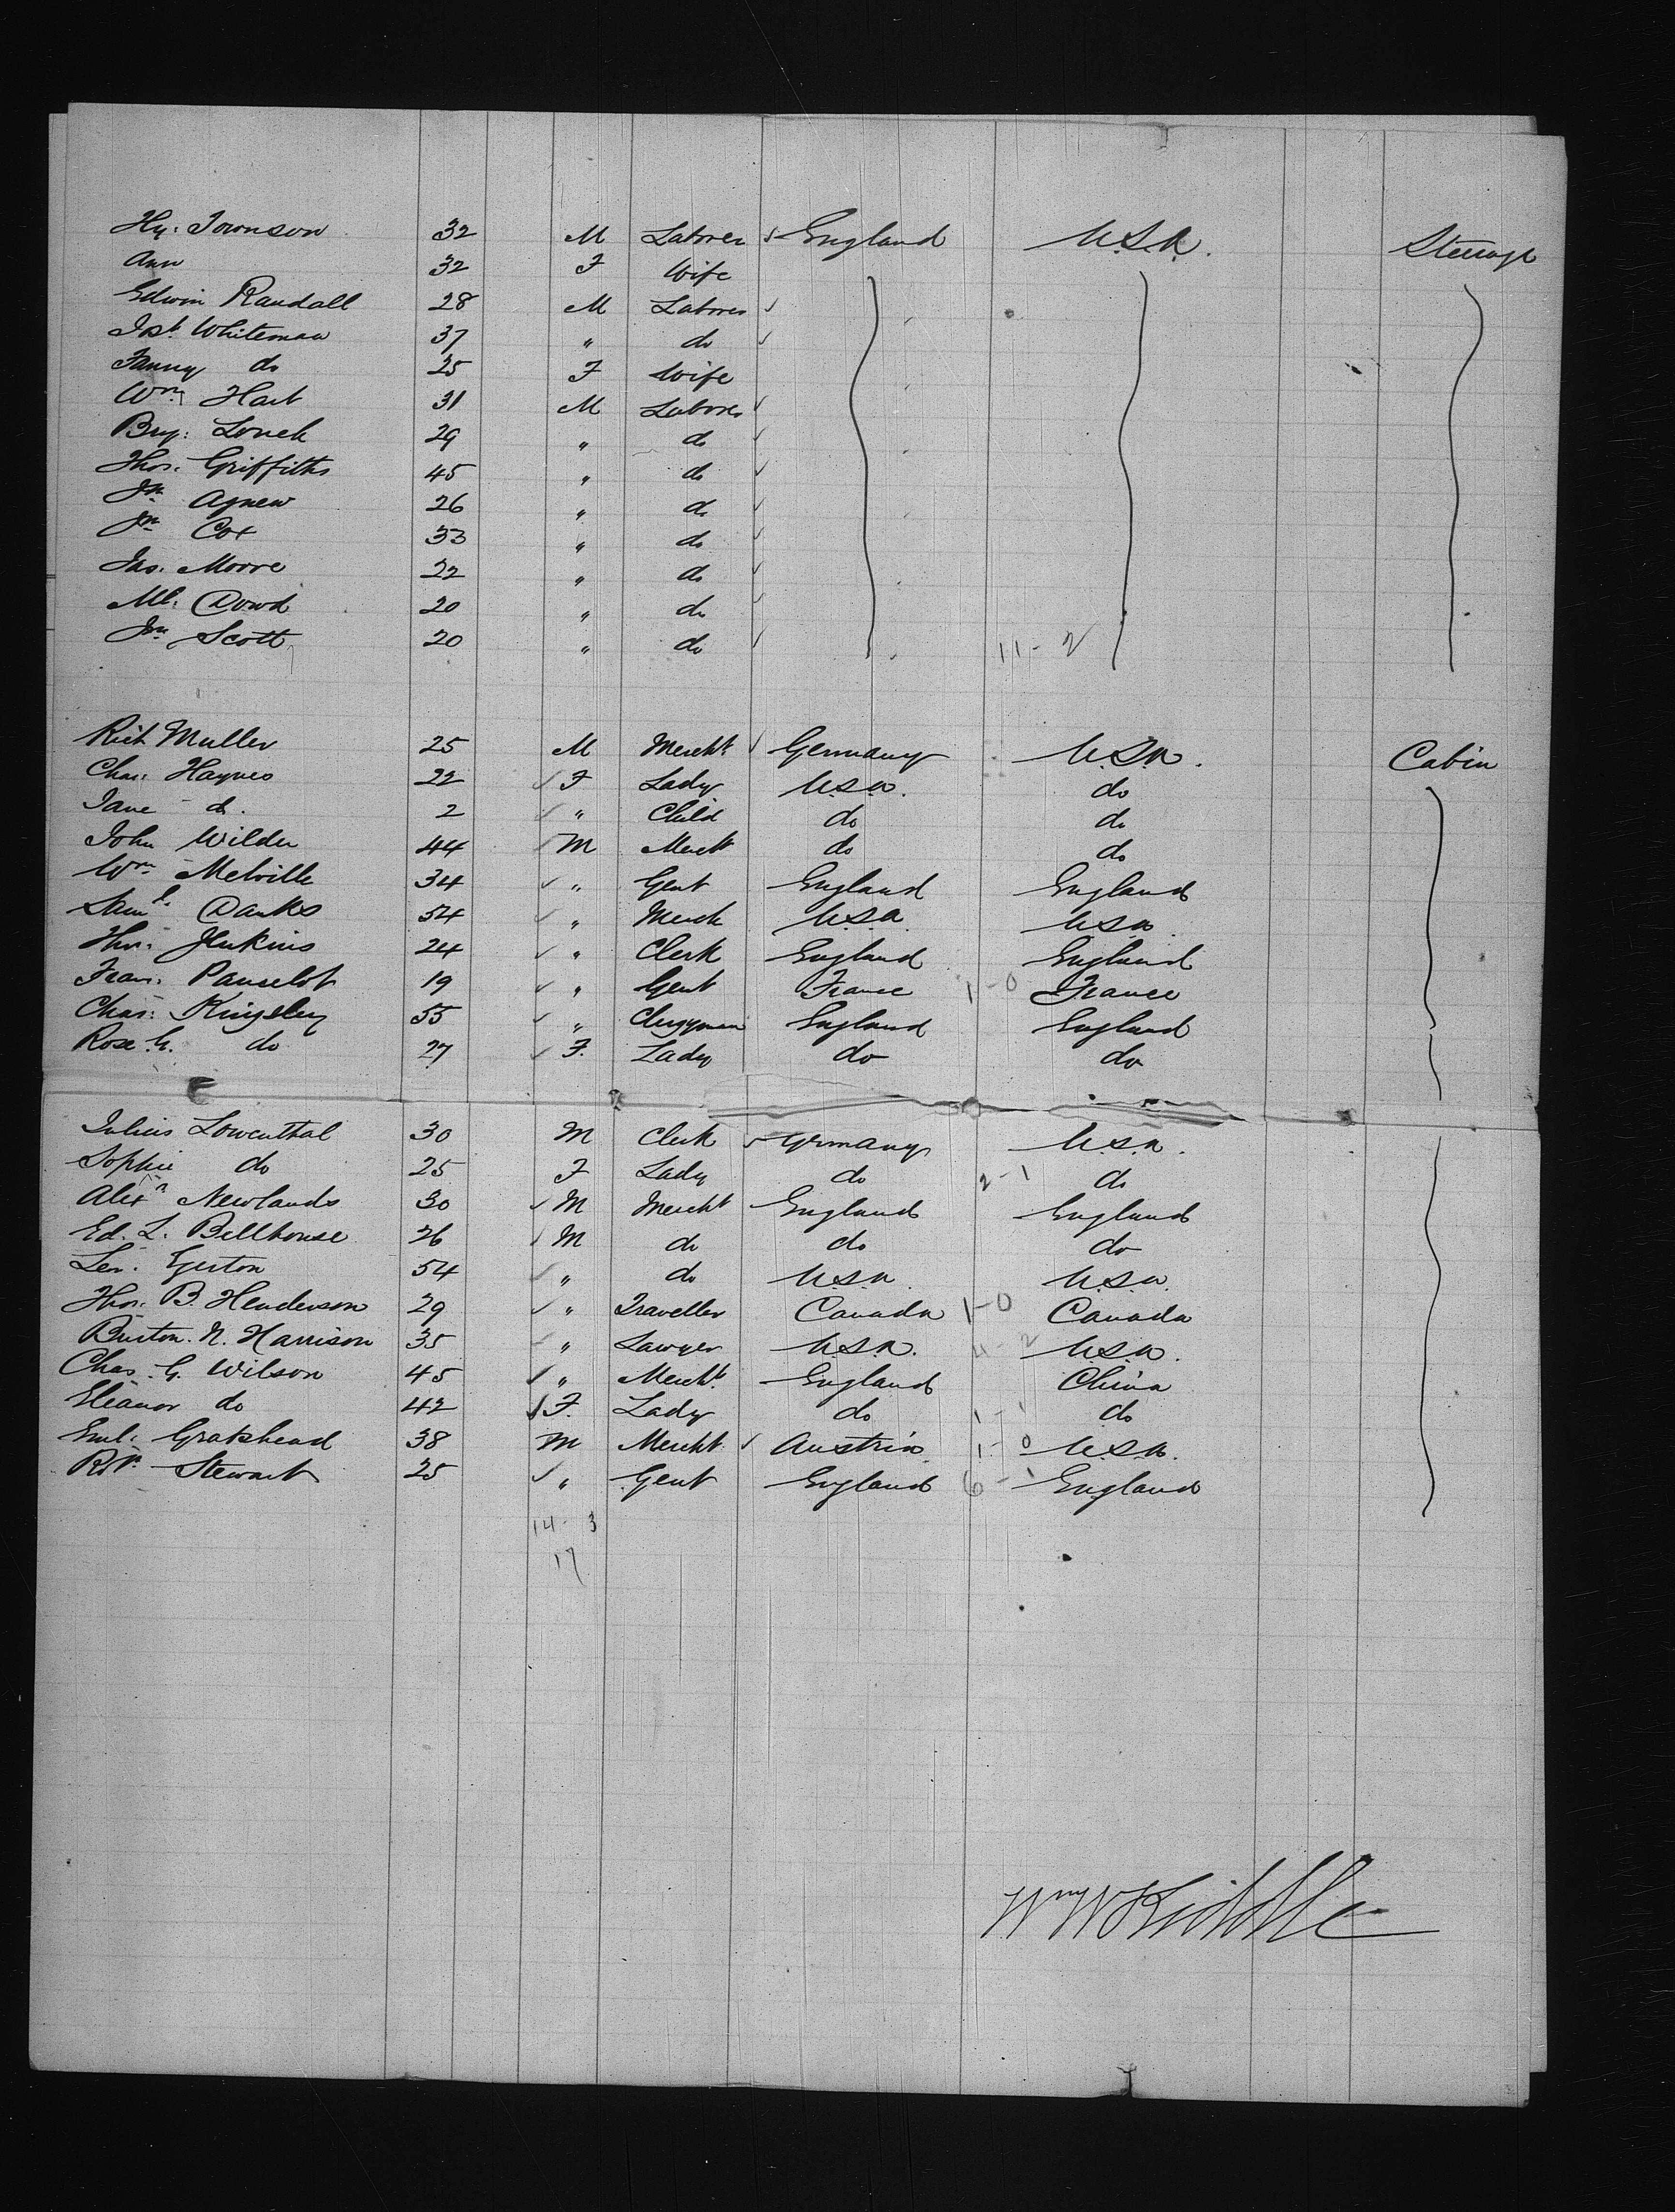 Hy. Townson 32 M Laborer England U.S.A. Steerage
Ann 32 F Wife
Edwin Randall 28 M Laborer
Jos. Whiteman 37 " do
Fanny do 25 F Wife
Wm Hart 31 M Laborer
29 " do
Thos. Griffiths 45 " do
Jn Agnew 26 " do
Jn Cox 33 " do
Jas. Moore 22 " do
Ml. Dowd 20 " do
Jn Scott 20 " do 11-2
Rich Muller 25 M Mercht Germany U.S.A. Cabin
Chas. Haynes 22 F Lady U.S.A. do
Jane do. 2 " Child do do
John Wilder 44 M Mercht do do
Wm Melville 34 " Gent England England
Saml. Danks 54 " Merch U.S.A. U.S.A.
Thos. Jenkins 24 " Clerk England England
Fran. 19 " Gent France 1-0 France
Chas. Kingsley 55 " Clergyman England England
Rose G. do 27 F. Lady do do
Julius Lowenthal 30 M Clerk Germany U.S.A.
Sophie do 25 F Lady do 2-1 do
Alexr Newlands 30 M Mercht England England
Ed. L. Bellhouse 26 M do do do
54 " do U.S.A. U.S.A.
Thos. B. Henderson 29 " Traveller Canada 1-0 Canada
Burton N. Harrison 35 " Lawyer U.S.A. 4-2 U.S.A.
Chas. G. Wilson 45 " Mercht. England China
Eleanor do 42 F. Lady do 1-1 do
38 M Mercht Austria 1-0 U.S.A.
Robt. Stewart 25 " Gent England 6-1 England
14-3
17